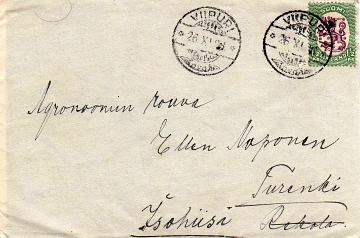 VIIPURI
VIIPURI
SUOMI
26.XI.21
26.XI.
Agronoomin rouva
Ellen Naponen
Turenki
Isohiisi Rekola.